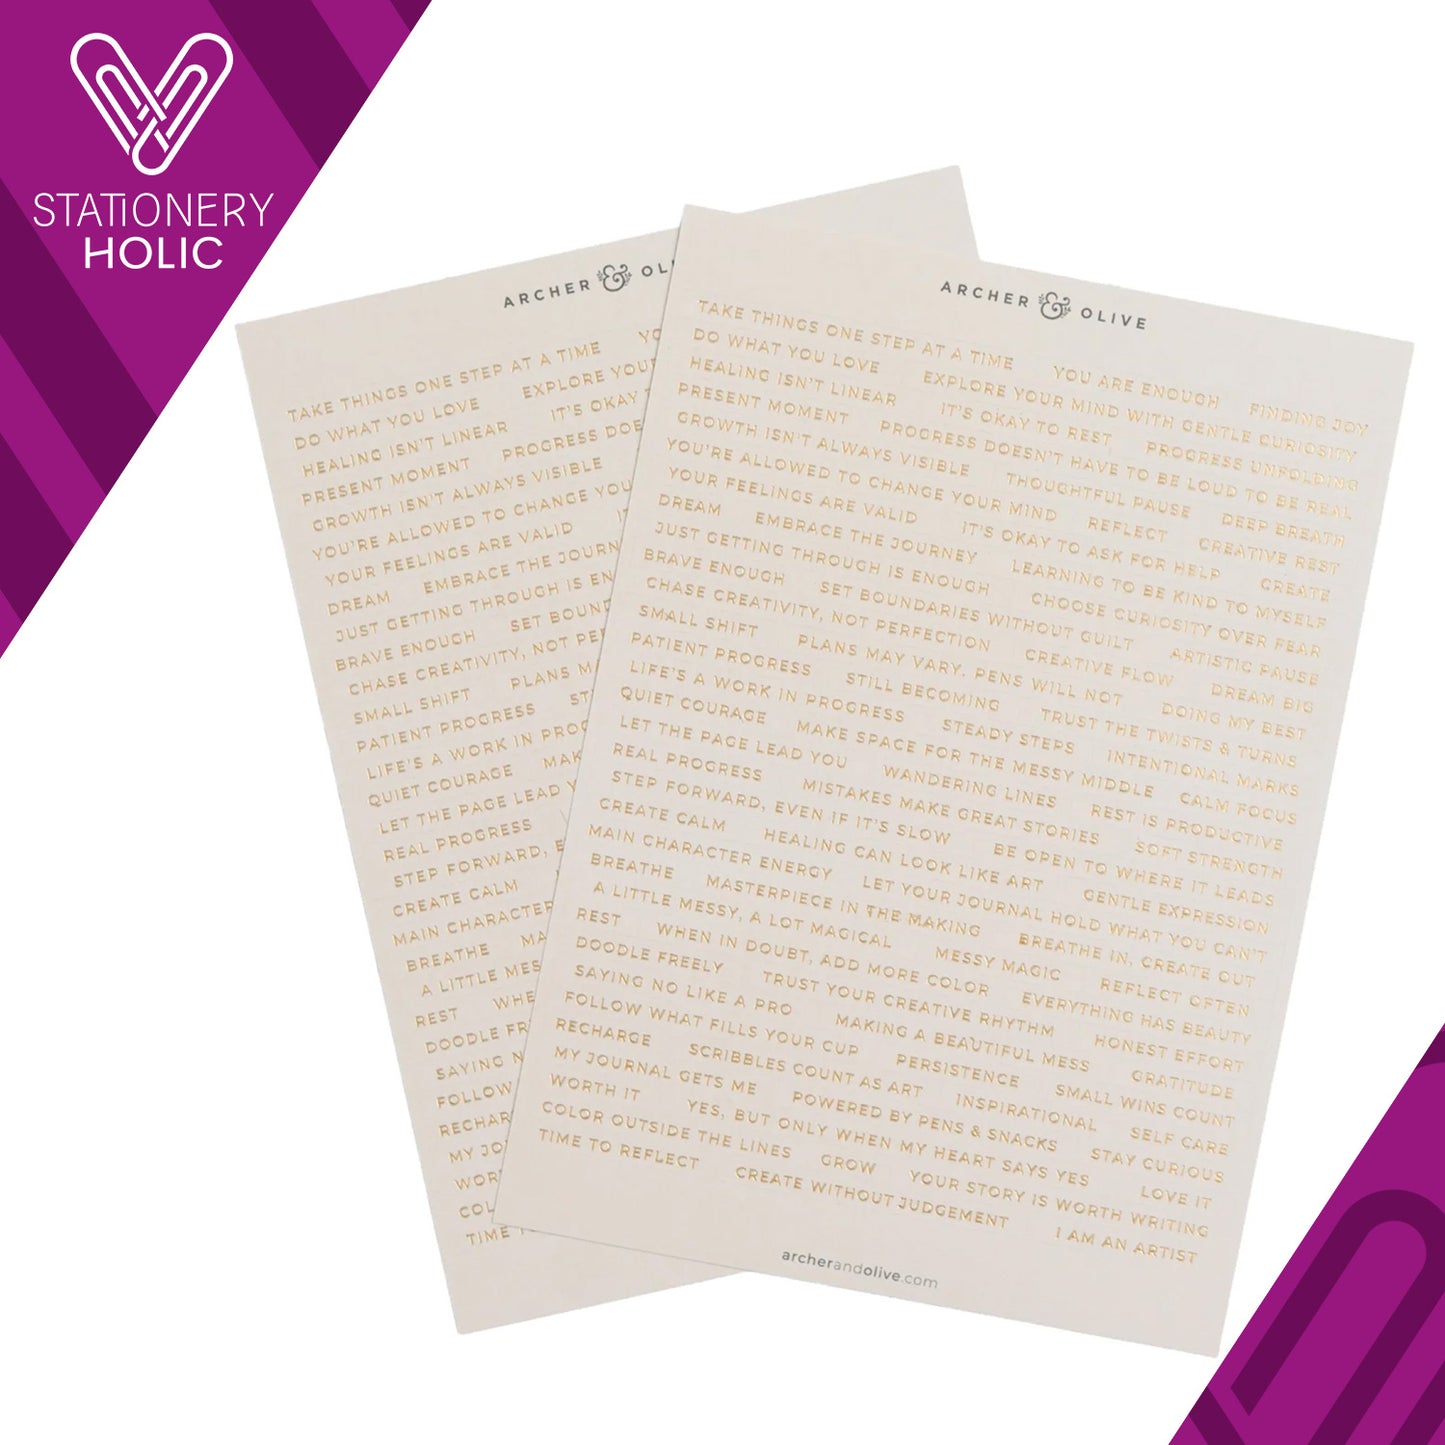 STATIONERY
HOLIC
ARCHER & OL
TAKE THINGS ONE STEP AT A TIME YO
DO WHAT YOU LOVE EXPLORE YOUR
HEALING ISN'T LINEAR IT'S OKAY T
PRESENT MOMENT PROGRESS DOE
GROWTH ISN'T ALWAYS VISIBLE
YOU'RE ALLOWED TO CHANGE YOU
YOUR FEELINGS ARE VALID
DREAM EMBRACE THE JOURN
JUST GETTING THROUGH IS EN
BRAVE ENOUGH SET BOUND
CHASE CREATIVITY, NOT PER
SMALL SHIFT PLANS M
PATIENT PROGRESS ST
LIFE'S A WORK IN PROG
QUIET COURAGE MAK
LET THE PAGE LEAD Y
REAL PROGRESS
STEP FORWARD, E
CREATE CALM
MAIN CHARACTER
BREATHE MA
A LITTLE MES
REST WHE
DOODLE FR
SAYING N
FOLLOW
RECHAR
MY JO
WOR
COL
TIME T
ARCHER & OLIVE
TAKE THINGS ONE STEP AT A TIME YOU ARE ENOUGH FINDING JOY
DO WHAT YOU LOVE EXPLORE YOUR MIND WITH GENTLE CURIOSITY
HEALING ISN'T LINEAR IT'S OKAY TO REST PROGRESS UNFOLDING
PRESENT MOMENT PROGRESS DOESN'T HAVE TO BE LOUD TO BE REAL
GROWTH ISN'T ALWAYS VISIBLE THOUGHTFUL PAUSE DEEP BREATH
YOU'RE ALLOWED TO CHANGE YOUR MIND REFLECT CREATIVE REST
YOUR FEELINGS ARE VALID IT'S OKAY TO ASK FOR HELP CREATE
DREAM EMBRACE THE JOURNEY LEARNING TO BE KIND TO MYSELF
JUST GETTING THROUGH IS ENOUGH CHOOSE CURIOSITY OVER FEAR
BRAVE ENOUGH SET BOUNDARIES WITHOUT GUILT ARTISTIC PAUSE
CHASE CREATIVITY, NOT PERFECTION CREATIVE FLOW DREAM BIG
SMALL SHIFT PLANS MAY VARY. PENS WILL NOT DOING MY BEST
PATIENT PROGRESS STILL BECOMING TRUST THE TWISTS & TURNS
LIFE'S A WORK IN PROGRESS STEADY STEPS INTENTIONAL MARKS
QUIET COURAGE MAKE SPACE FOR THE MESSY MIDDLE CALM FOCUS
LET THE PAGE LEAD YOU WANDERING LINES REST IS PRODUCTIVE
REAL PROGRESS MISTAKES MAKE GREAT STORIES SOFT STRENGTH
STEP FORWARD, EVEN IF IT'S SLOW BE OPEN TO WHERE IT LEADS
CREATE CALM HEALING CAN LOOK LIKE ART GENTLE EXPRESSION
MAIN CHARACTER ENERGY LET YOUR JOURNAL HOLD WHAT YOU CAN'T
BREATHE MASTERPIECE IN THE MAKING BREATHE IN, CREATE OUT
A LITTLE MESSY, A LOT MAGICAL MESSY MAGIC REFLECT OFTEN
REST WHEN IN DOUBT, ADD MORE COLOR EVERYTHING HAS BEAUTY
DOODLE FREELY TRUST YOUR CREATIVE RHYTHM HONEST EFFORT
SAYING NO LIKE A PRO MAKING A BEAUTIFUL MESS GRATITUDE
FOLLOW WHAT FILLS YOUR CUP PERSISTENCE SMALL WINS COUNT
RECHARGE SCRIBBLES COUNT AS ART INSPIRATIONAL SELF CARE
MY JOURNAL GETS ME POWERED BY PENS & SNACKS STAY CURIOUS
WORTH IT YES, BUT ONLY WHEN MY HEART SAYS YES LOVE IT
COLOR OUTSIDE THE LINES GROW YOUR STORY IS WORTH WRITING
TIME TO REFLECT CREATE WITHOUT JUDGEMENT I AM AN ARTIST
archerandolive.com